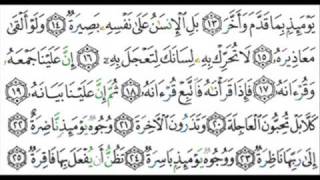 يَوْمَئِذٍ بِمَا قَدَّمَ وَأَخَّرَ ١٣ بَلِ ٱلْإِنسَٰنُ عَلَىٰ نَفْسِهِۦ بَصِيرَةٌ ١٤ وَلَوْ أَلْقَىٰ
مَعَاذِيرَهُۥ ١٥ لَا تُحَرِّكْ بِهِۦ لِسَانَكَ لِتَعْجَلَ بِهِۦٓ ١٦ إِنَّ عَلَيْنَا جَمْعَهُۥ
وَقُرْءَانَهُۥ ١٧ فَإِذَا قَرَأْنَٰهُ فَٱتَّبِعْ قُرْءَانَهُۥ ١٨ ثُمَّ إِنَّ عَلَيْنَا بَيَانَهُۥ ١٩
كَلَّا بَلْ تُحِبُّونَ ٱلْعَاجِلَةَ ٢٠ وَتَذَرُونَ ٱلْءَاخِرَةَ ٢١ وُجُوهٌ يَوْمَئِذٍ نَّاضِرَةٌ ٢٢
إِلَىٰ رَبِّهَا نَاظِرَةٌ ٢٣ وَوُجُوهٌ يَوْمَئِذٍۭ بَاسِرَةٌ ٢٤ تَظُنُّ أَن يُفْعَلَ بِهَا فَاقِرَةٌ ٢٥